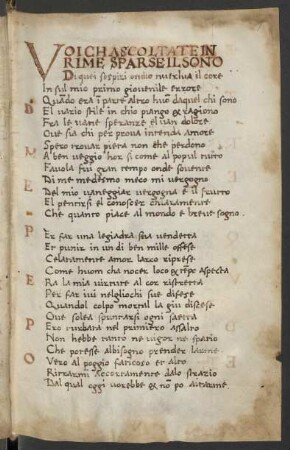 VOICHASCOLTATE IN
RIME SPARSE IL SONO
Di quei sospiri ondio nutriva il core
In sul mio primo giovenile errore
Quãdo era i parte altro huõ daquel chi sono
El vario stile in chio piango & ragiono
Fra le vane speranze el van dolore
Ove sia chi per prova intenda amore
Spero trovar pieta non che perdono
A ben veggio hor si come al popul tutto
Favola fui gran tempo onde sovente
Di me medesmo meco mi vergogno
Del mio vaneggiar vergogna e il frutto
El pentirsi el conoscer chiaramente
Che quanto piace al mondo e breve sogno.
Per far una legiadra sua vendetta
Et punir in un di ben mille offese
Celatamente amor larco riprese
Come huom cha nocer loco & tẽpo aspecta
Era la mia virtute al cor ristretta
Per far ivi negliochi sue difese
Quandol colpo mortal la giu discese
Ove solea spuntarsi ogni saetta
Pero turbata nel primiero assalto
Non hebbe tanto ne vigor ne spatio
Che potesse al bisogno prender larme
O vero al poggio faticoso et alto
Ritrarmi accortamente dalo stratio
Dal qual oggi vorebbe & nõ po aitarme.